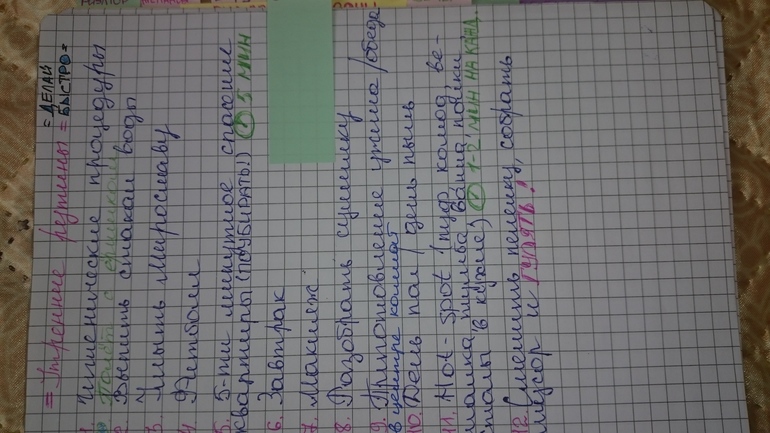 = Утренние рутины =
= ДЕЛАЙ
БЫСТРО =
1. Гигиенические процедуры
Тост с
2. Выпить стакан воды
3. Умыть Мирославу
4. Фитбол
5. 5-ти минутное спасение
квартиры (ПОУБИРАТЬ!) 5 МИН
6. Завтрак
7. Макияж
8. Разобрать сушилку
9. Приготовление ужина / обеда
в центре комнат
10. День пол / день пыль
11. Hot-spot (пудр, комод, ве-
шалка, тумба, ванна, полки,
столы в кухне) 1-2 МИН НА КАЖД...
12. Сменить пеленку, собрать
мусор и ГУЛЯТЬ!